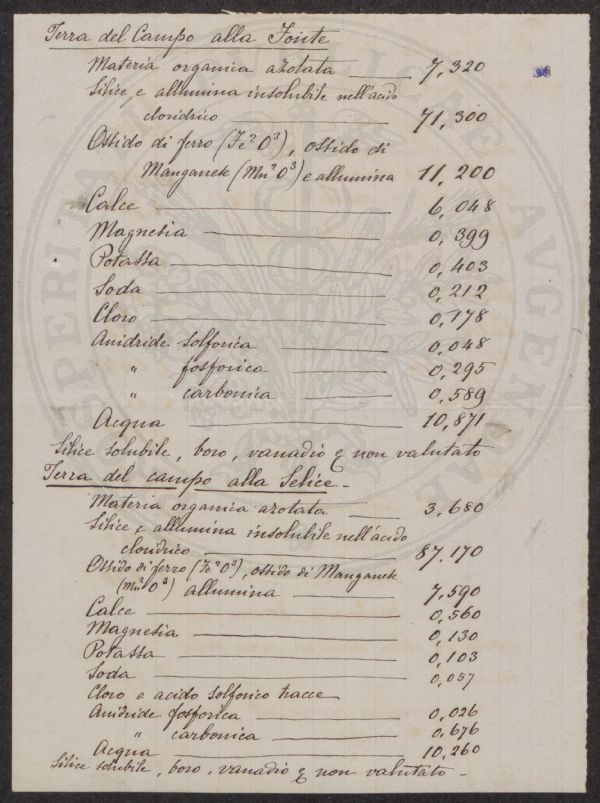 Terra del Campo alla Fonte
Materia organica azotata 7,320
Silice e allumina insolubile nell'acido
cloridrico 71,300
Ossido di ferro (Fe² O³), ossido di
Manganese (Mn² O³) e allumina 11,200
Calce 6,048
Magnesia 0,399
Potassa 0,403
Soda 0,212
Cloro 0,178
Anidride solforica 0,048
" fosforica 0,295
" carbonica 0,589
Acqua 10,871
Silice solubile, boro, vanadio e non valutato
Terra del campo alla Selice -
Materia organica azotata 3,680
Silice e allumina insolubile nell'acido
cloridrico 87,170
Ossido di ferro (Fe² O³), ossido di Manganese
(Mn² O³) allumina 7,590
Calce 0,560
Magnesia 0,130
Potassa 0,103
Soda 0,057
Cloro e acido solforico tracce
Anidride fosforica 0,026
" carbonica 0,676
Acqua 10,260
Silice solubile, boro, vanadio e non valutato -